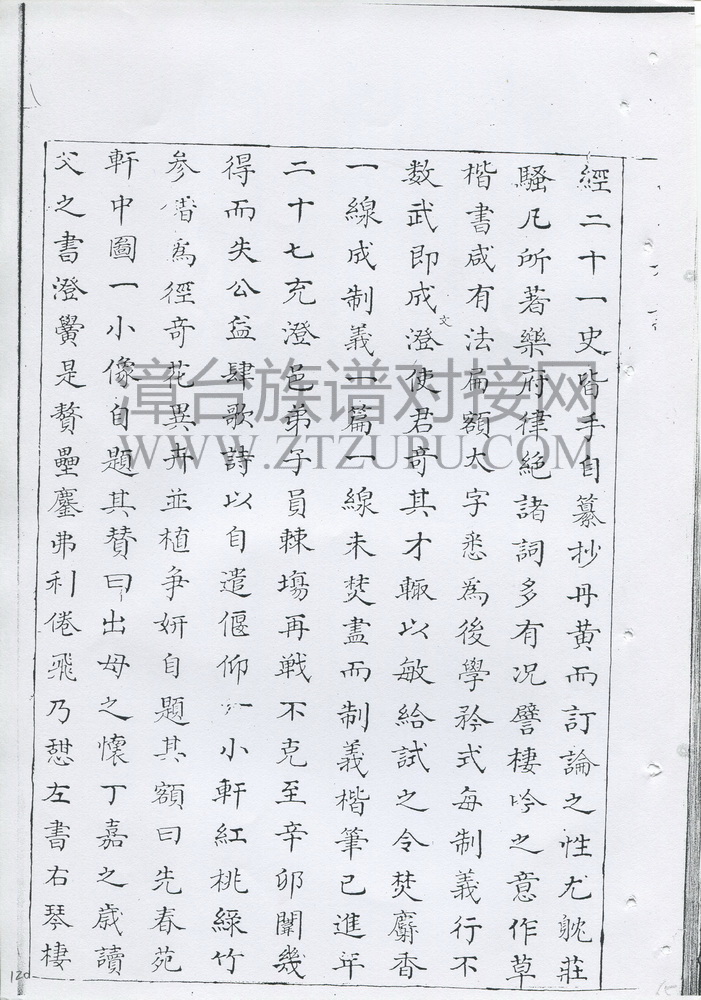 經二十一史皆手自纂抄丹黄而訂論之性尤躭莊
騷凡所著樂府律絕諸詞多有况譬棲吟之意作草
楷書咸有法扁額大字悉為後學矜式每制義行不
数武即成澄文使君竒其才輒以敏給試之令焚麝香
一線成制義一篇一線未焚盡而制義楷筆已進年
二十七充澄邑弟子員棘塲再戦不克至辛卯闈幾
得而失公益肆歌詩以自遣偃仰一小軒紅桃綠竹
参㬱為徑竒花異卉並植争妍自題其額曰先春苑
軒中圖一小像自題其賛曰出母之懷丁嘉之歳讀
父之書澄黌是贅壘鏖弗利倦飛乃憇左書右琴棲
漳台族谱对接网
WWW.ZTZUPU.COM
120